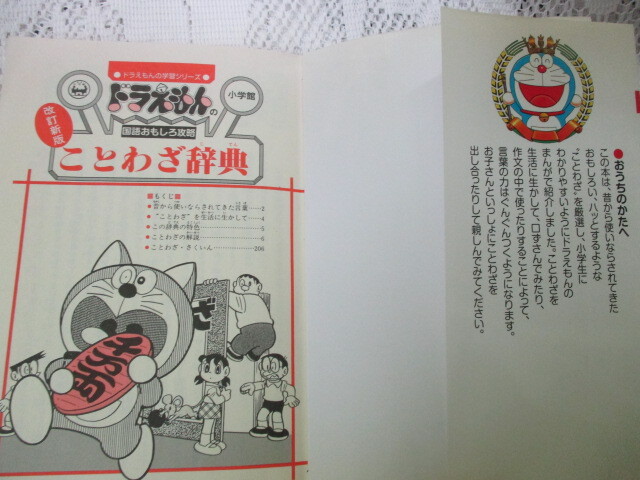 ●ドラえもんの学習シリーズ●
ドラえもんの
小学館
改訂新版
国語おもしろ攻略
ことわざ辞典
じてん
■もくじ■
●昔から使いならされてきた言葉…2
●“ことわざ”を生活に生かして…4
●この辞典の特色…5
●ことわざの解説…6
●ことわざ・さくいん…206
●おうちのかたへ
この本は、昔から使いならされてきた
おもしろい、ハッとするような
“ことわざ”を厳選し、小学生に
わかりやすいようにドラえもんの
まんがで紹介しました。ことわざを
生活に生かして、口ずさんでみたり、
作文の中で使ったりすることによって、
言葉の力はぐんぐんつくようになります。
お子さんといっしょにことわざを
出し合ったりして親しんでみてください。